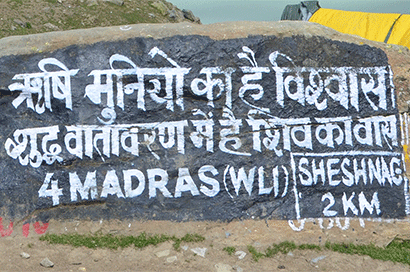 ऋषि मुनियो का है विश्वास
शुद्ध वातावरण में है शिव का वास
4 MADRAS (WLI)
SHESHNAG
2 KM